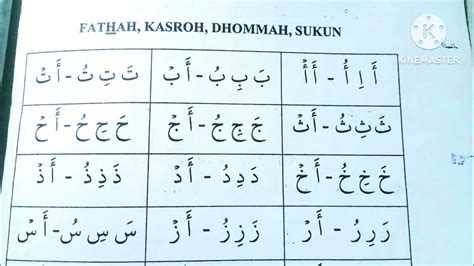 FATHAH, KASROH, DHOMMAH, SUKUN
KINEMASTER
أَ اِ أُ - أَأْ
بَ بِ بُ - أَبْ
تَ تِ تُ - أَتْ
ثَ ثِ ثُ - أَثْ
جَ جِ جُ - أَجْ
حَ حِ حُ - أَحْ
خَ خِ خُ - أَخْ
دَ دِ دُ - أَدْ
ذَ ذِ ذُ - أَذْ
رَ رِ رُ - أَرْ
زَ زِ زُ - أَزْ
سَ سِ سُ - أَسْ